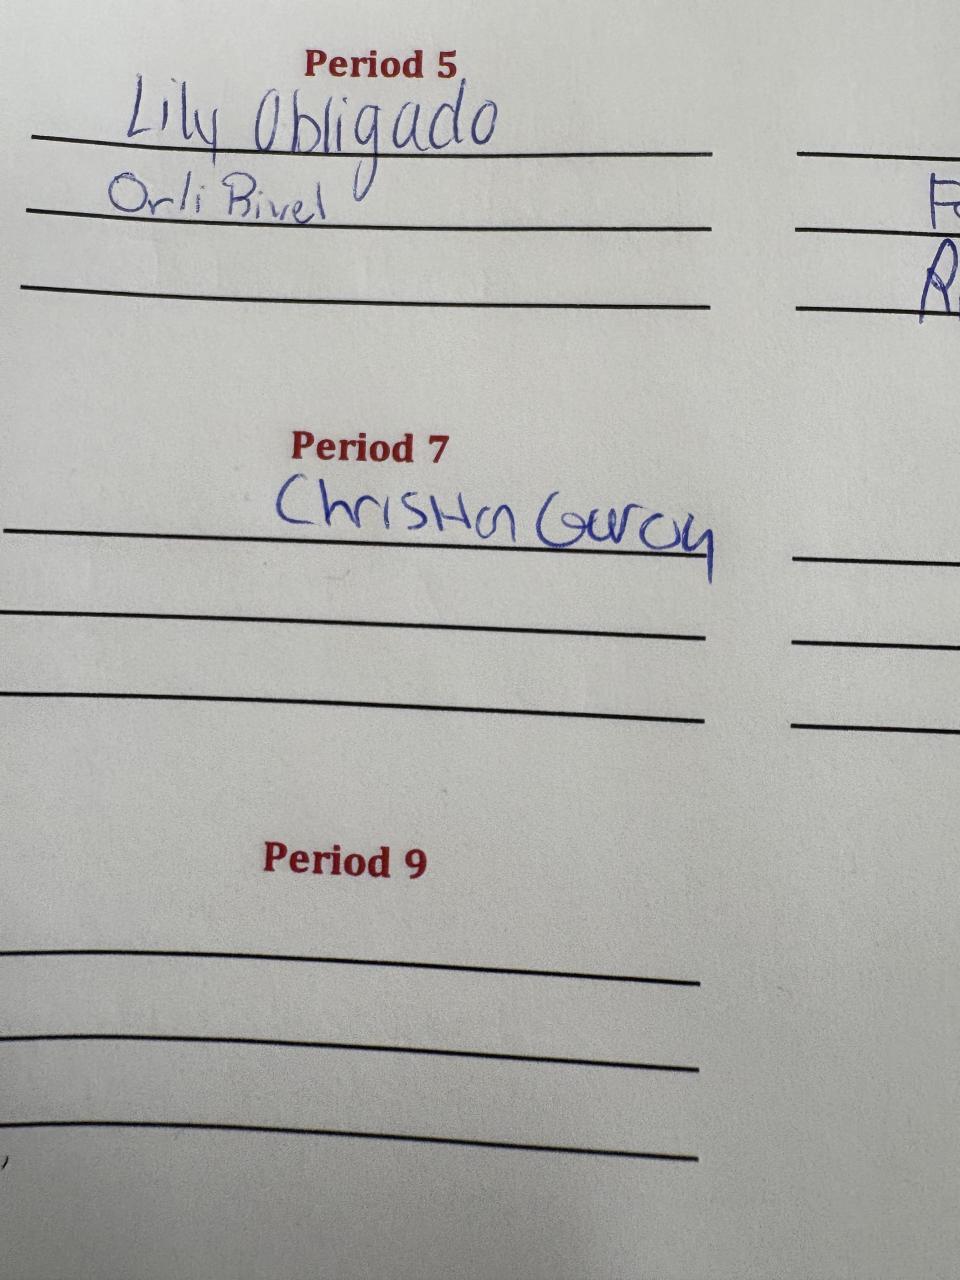 Period 5
Lily Obligado
Orli Bivel
Period 7
Christian
Period 9